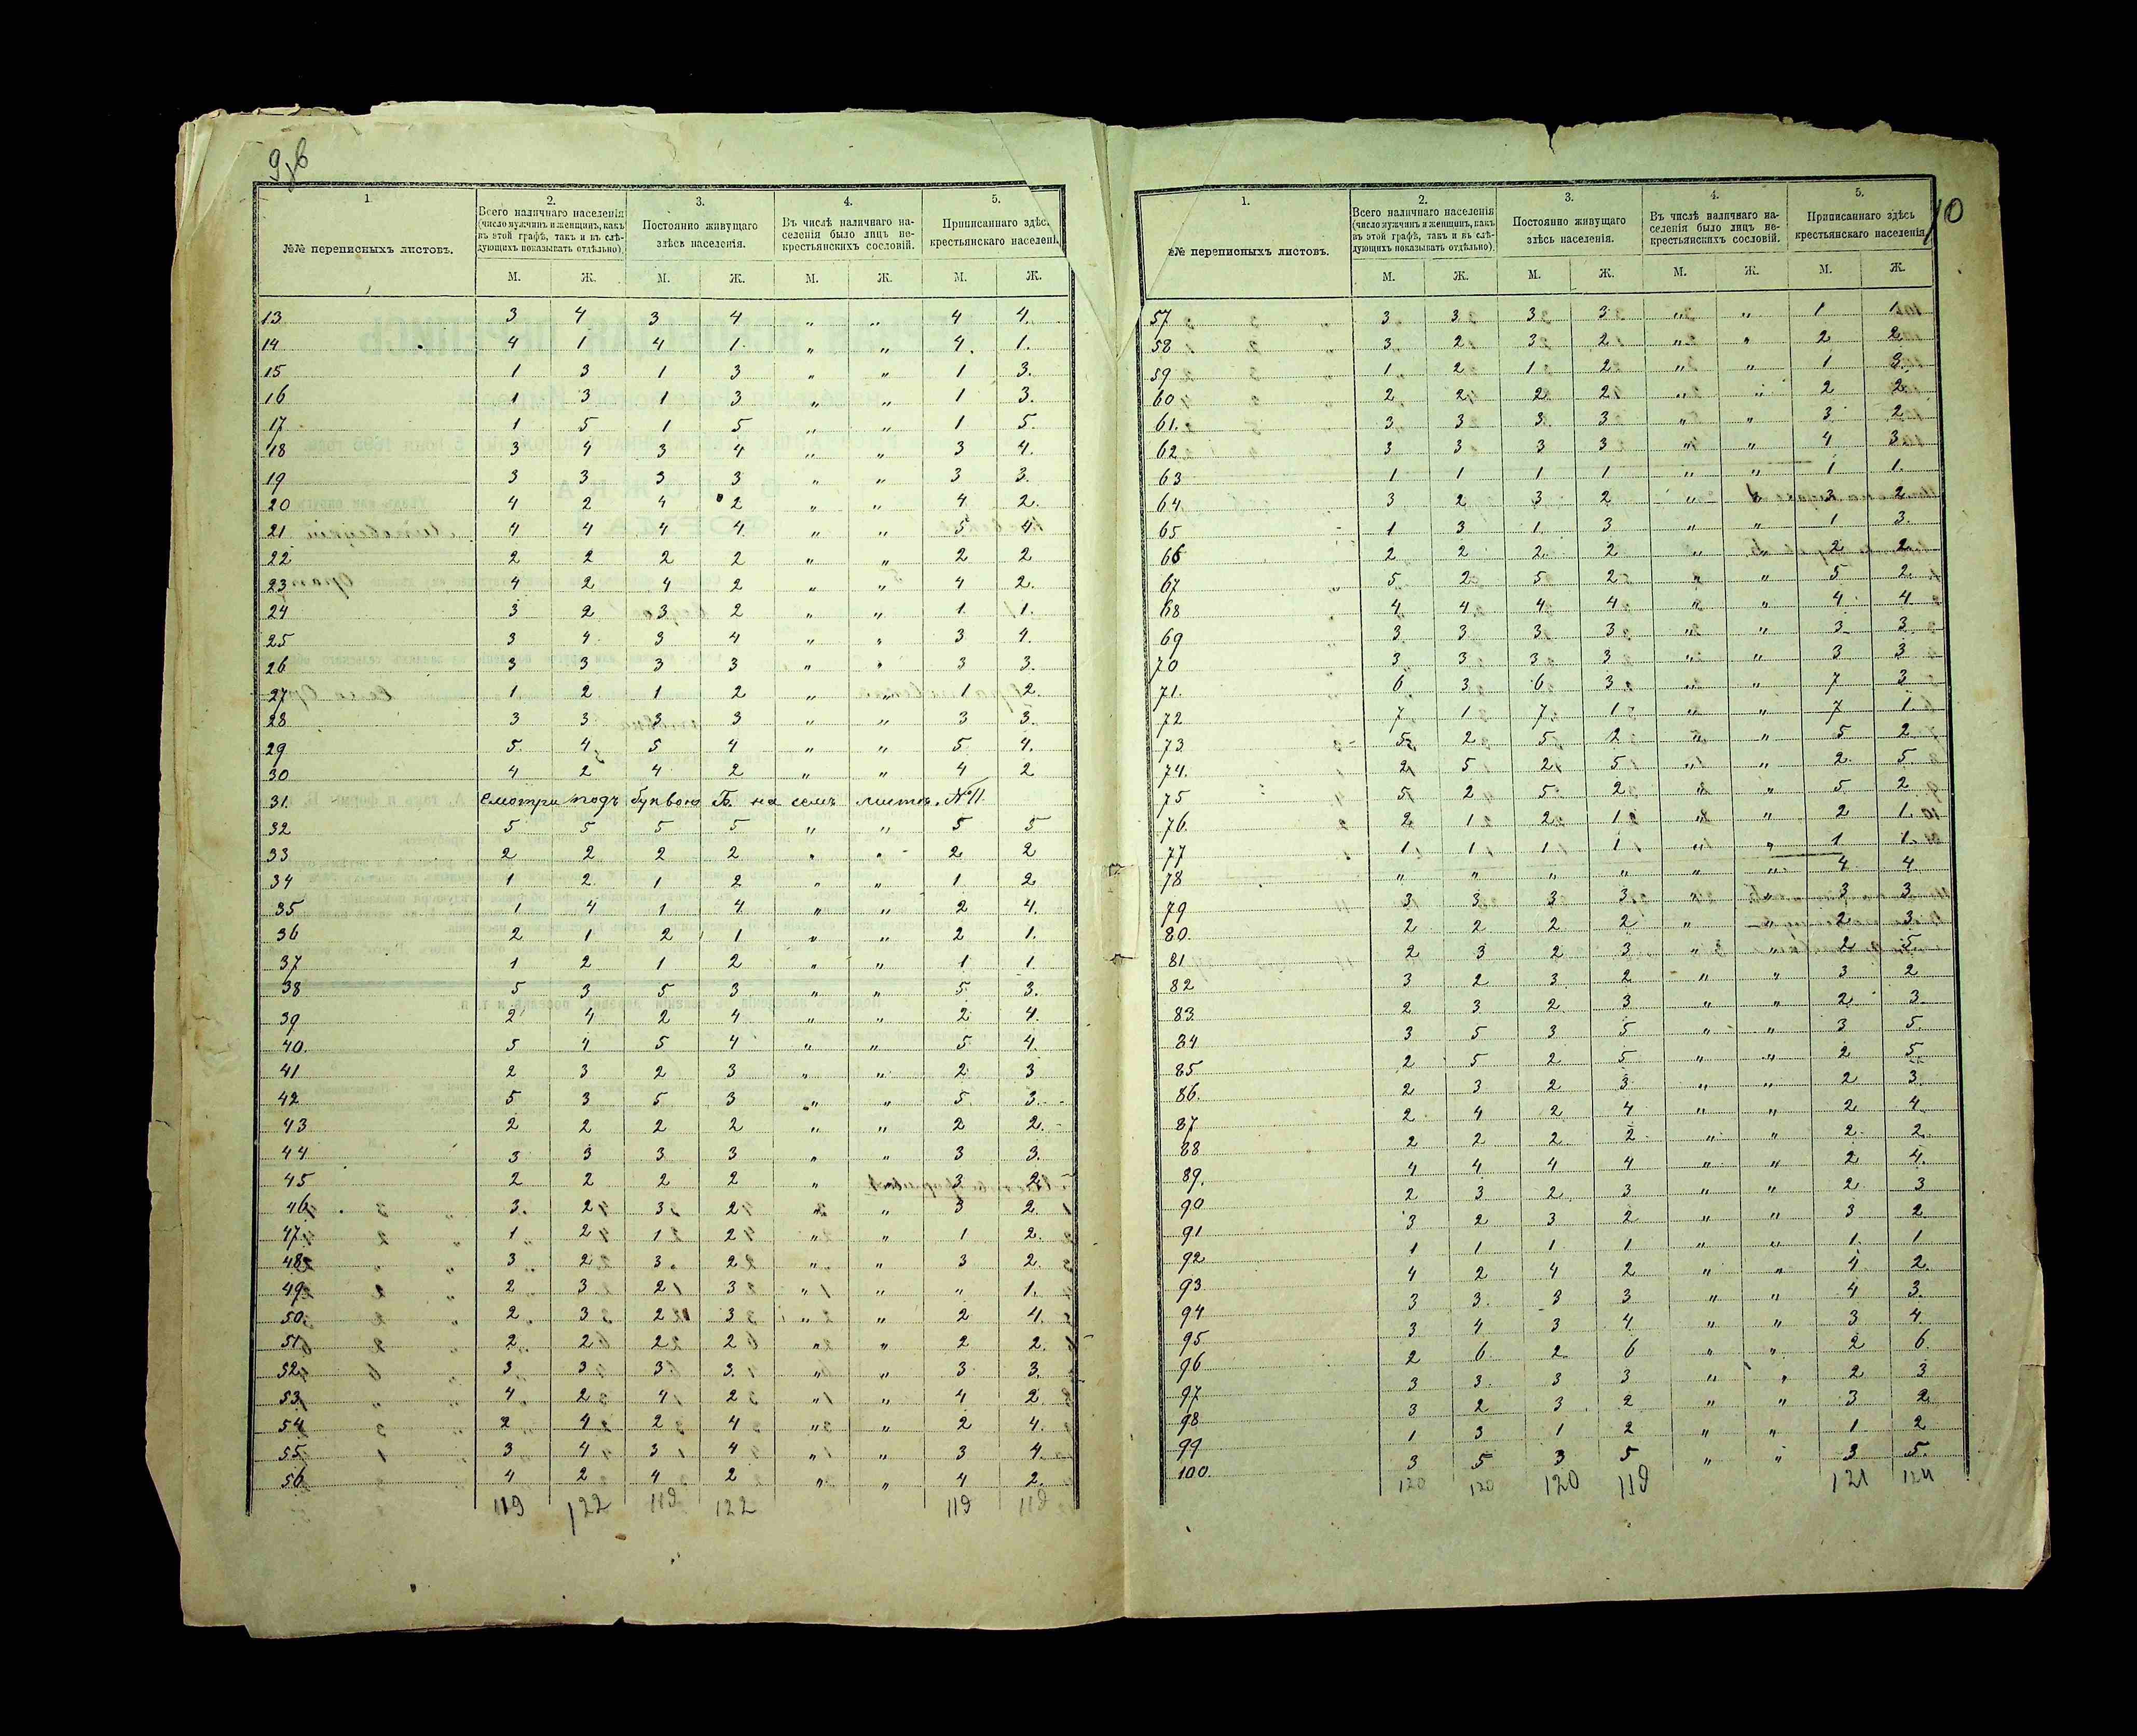 9об
1.
2.
3.
4.
5.
№№ переписныхъ листовъ.
Всего наличнаго населенія
(число мужчинъ и женщинъ, какъ
въ этой графѣ, такъ и въ слѣ-
дующихъ показывать отдѣльно).
Постоянно живущаго
здѣсь населенія.
Въ числѣ наличнаго на-
селенія было лицъ не-
крестьянскихъ сословій.
Приписаннаго здѣс
крестьянскаго населені
М. Ж. М. Ж. М. Ж. М. Ж.
13 3 4 3 4 „ „ 4 4.
14 4 1 4 1. „ „ 4. 1.
15 1 3 1 3 „ „ 1 3.
16 1 3 1 3 „ „ 1 3.
17 1 5 1 5 „ „ 1 5.
18 3 4 3 4 „ „ 3 4.
19 3 3 3 3 „ „ 3 3.
20 4 2 4 2 „ „ 4 2.
21 4 4 4 4 „ „ 5 4
22 2 2 2 2 „ „ 2 2
23 4 2 4 2 „ „ 4 2.
24 3 2 3 2 „ „ 1 1.
25 3 4 3 4 „ „ 3 4.
26 3 3 3 3 „ „ 3 3.
27 1 2 1 2 „ „ 1 2.
28 3 3 3 3 „ „ 3 3.
29 5 4 5 4 „ „ 5 4.
30 4 2 4 2 „ „ 4 2
31. Смотри подъ буквою Б. на семъ листѣ. №11.
32 5 5 5 5 „ „ 5 5
33 2 2 2 2 „ „ 2 2
34 1 2 1 2 „ „ 1 2
35 1 4 1 4 „ „ 2 4.
36 2 1 2 1 „ „ 2 1.
37 1 2 1 2 „ „ 1 1
38 5 3 5 3 „ „ 5 3.
39 2 4 2 4 „ „ 2 4.
40. 5 4 5 4 „ „ 5 4.
41 2 3 2 3 „ „ 2 3
42 5 3 5 3 „ „ 5 3.
43 2 2 2 2 „ „ 2 2.
44 3 3 3 3 „ „ 3 3.
45 2 2 2 2 „ 3 2
46 3 2 3 2 „ „ 3 2
47 1 2 1 2 „ „ 1 2.
48 3 2 3 2 „ „ 3 2.
49 2 3 2 3 „ „ „ 1.
50 2 3 2 3 „ „ 2 4.
51 2 2 2 2 „ „ 2 2.
52 3 3 3 3 „ „ 3 3.
53 4 2 4 2 „ „ 4 2
54 2 4 2 4 „ „ 2 4.
55 3 4 3 4 „ „ 3 4.
56 4 2 4 2 „ „ 4 2.
119 122 119 122 119 119
10
1.
2.
3.
4.
5.
№ переписныхъ листовъ.
Всего наличнаго населенія
(число мужчинъ и женщинъ, какъ
въ этой графѣ, такъ и въ слѣ-
дующихъ показывать отдѣльно).
Постоянно живущаго
здѣсь населенія.
Въ числѣ наличнаго на-
селенія было лицъ не-
крестьянскихъ сословій.
Приписаннаго здѣсь
крестьянскаго населенія
М. Ж. М. Ж. М. Ж. М. Ж.
57 3 3 3 3 „ „ 1 1
58 3 2 3 2 „ „ 2 2
59 1 2 1 2 „ „ 1 3.
60 2 2 2 2 „ „ 2 2.
61. 3 3 3 3 „ „ 3 2
62 3 3 3 3 „ „ 4 3
63 1 1 1 1 „ „ 1 1.
64 3 2 3 2 „ „ 3 2
65 1 3 1 3 „ „ 1 3.
66 2 2 2 2 „ „ 2 2.
67 5 2 5 2 „ „ 5 2.
68 4 4 4 4 „ „ 4 4
69 3 3 3 3 „ „ 3 3
70 3 3 3 3 „ „ 3 3
71. 6 3 6 3 „ „ 7 3
72 7 1 7 1 „ „ 7 1.
73 5 2 5 2 „ „ 5 2.
74. 2 5 2 5 „ „ 2 5
75 5 2 5 2 „ „ 5 2
76. 2 1 2 1 „ „ 2 1.
77 1 1 1 1 „ „ 1 1.
78 „ „ „ „ „ „ 4 4
79 3 3 3 3 „ „ 3 3
80. 2 2 2 2 „ „ 2 3.
81 2 3 2 3 „ „ 2 5.
82 3 2 3 2 „ „ 3 2
83. 2 3 2 3 „ „ 2 3.
84 3 5 3 5 „ „ 3 5.
85 2 5 2 5 „ „ 2 5
86. 2 3 2 3 „ „ 2 3.
87 2 4 2 4 „ „ 2 4
88 2 2 2 2 „ „ 2 2.
89. 4 4 4 4 „ „ 2 4.
90 2 3 2 3 „ „ 2 3
91 3 2 3 2 „ „ 3 2
92 1 1 1 1 „ „ 1. 1
93 4 2 4 2 „ „ 4 2.
94 3 3. 3 3 „ „ 4 3.
95 3 4 3 4 „ „ 3 4.
96 2 6 2 6 „ „ 2 6.
97 3 3. 3 3 „ „ 2 3
98 3 2 3 2 „ „ 3 2
99 1 3 1 2 „ „ 1 2
100. 3 5 3 5 „ „ 3 5.
120 120 120 119 121 124